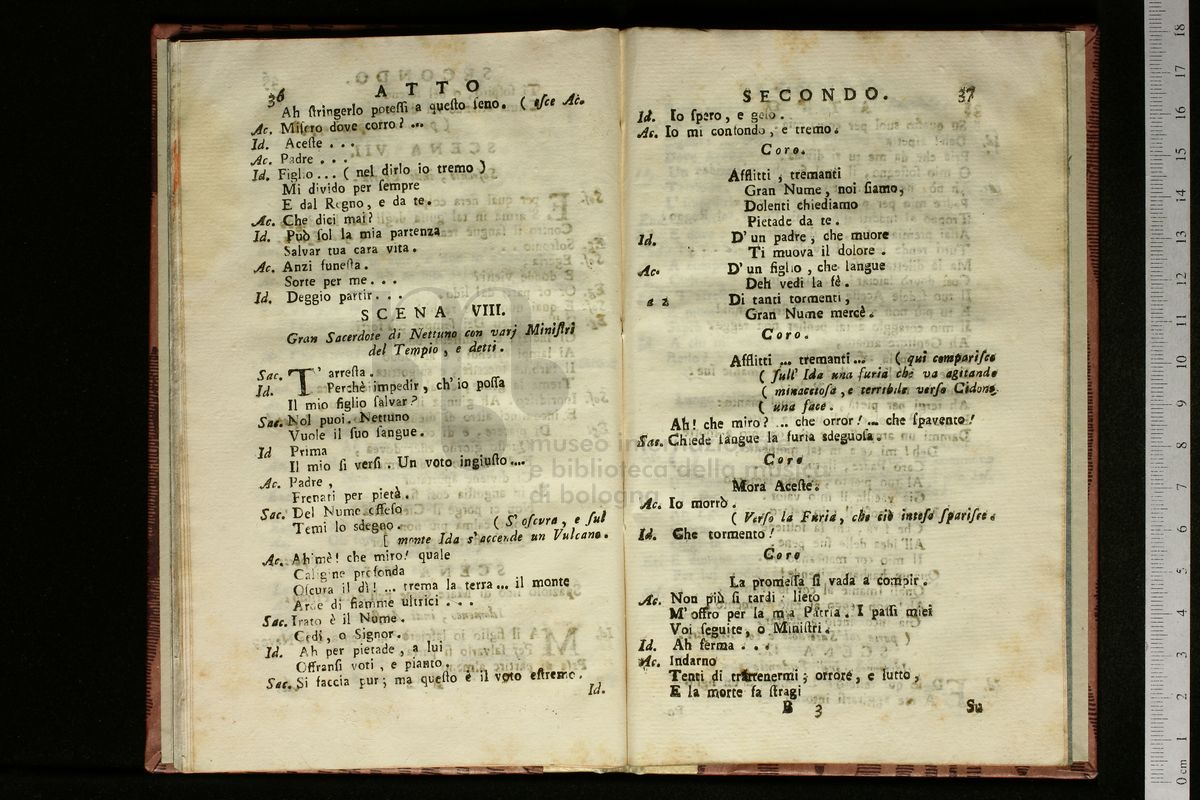 36 ATTO
Ah ſtringerlo poteſſi a queſto ſeno. ( eſce Ac.
Ac. Miſero dove corro? ...
Id. Aceſte . . .
Ac. Padre . . .
Id. Figlio ... ( nel dirlo io tremo )
Mi divido per ſempre
E dal Regno, e da te.
Ac. Che dici mai?
Id. Può ſol la mia partenza
Salvar tua cara vita.
Ac. Anzi funeſta.
Sorte per me. . .
Id. Deggio partir. . .
SCENA VIII.
Gran Sacerdote di Nettuno con varj Miniſtri
del Tempio, e detti.
Sac. T' arreſta.
Id. Perchè impedir, ch' io poſſa
Il mio figlio ſalvar?
Sac. Nol puoi. Nettuno
Vuole il ſuo ſangue.
Id Prima
Il mio ſi verſi. Un voto ingiuſto....
Ac. Padre,
Frenati per pietà.
Sac. Del Nume offeſo
Temi lo sdegno. ( S' oſcura, e ſul
[ monte Ida s' accende un Vulcano.
Ac. Ahimè! che miro! quale
Caligine profonda
Oſcura il dì! ... trema la terra... il monte
Arde di fiamme ultrici . . .
Sac. Irato è il Nome.
Cedi, o Signor.
Id. Ah per pietade, a lui
Offranſi voti, e pianto.
Sac. Si faccia pur; ma queſto è il voto eſtremo.
Id.
SECONDO. 37
Id. Io ſpero, e gelo.
Ac. Io mi confondo, e tremo.
Coro.
Afflitti, tremanti
Gran Nume, noi ſiamo,
Dolenti chiediamo
Pietade da te.
Id. D' un padre, che muore
Ti muova il dolore.
Ac. D' un figlio, che langue
Deh vedi la fè.
a 2 Di tanti tormenti,
Gran Nume mercè.
Coro.
Afflitti ... tremanti ... ( qui compariſce
( ſull' Ida una furia che va agitando
( minaccioſa, e terribile verſo Cidone
( una face.
Ah! che miro? ... che orror! ... che ſpavento!
Sac. Chiede ſangue la furia sdegnoſa.
Coro
Mora Aceſte.
Ac. Io morrò.
( Verſo la Furia, che ciò inteſo ſpariſce.
Id. Che tormento!
Coro
La promeſſa ſi vada a compir.
Ac. Non più ſi tardi: lieto
M' offro per la mia Patria. I paſſi miei
Voi ſeguite, o Miniſtri.
Id. Ah ferma . . .
Ac. Indarno
Tenti di trattenermi; orrore, e lutto,
E la morte fa ſtragi
B 3 Su
museo internazionale
e biblioteca della musica
di bologna
0 cm 1 2 3 4 5 6 7 8 9 10 11 12 13 14 15 16 17 18